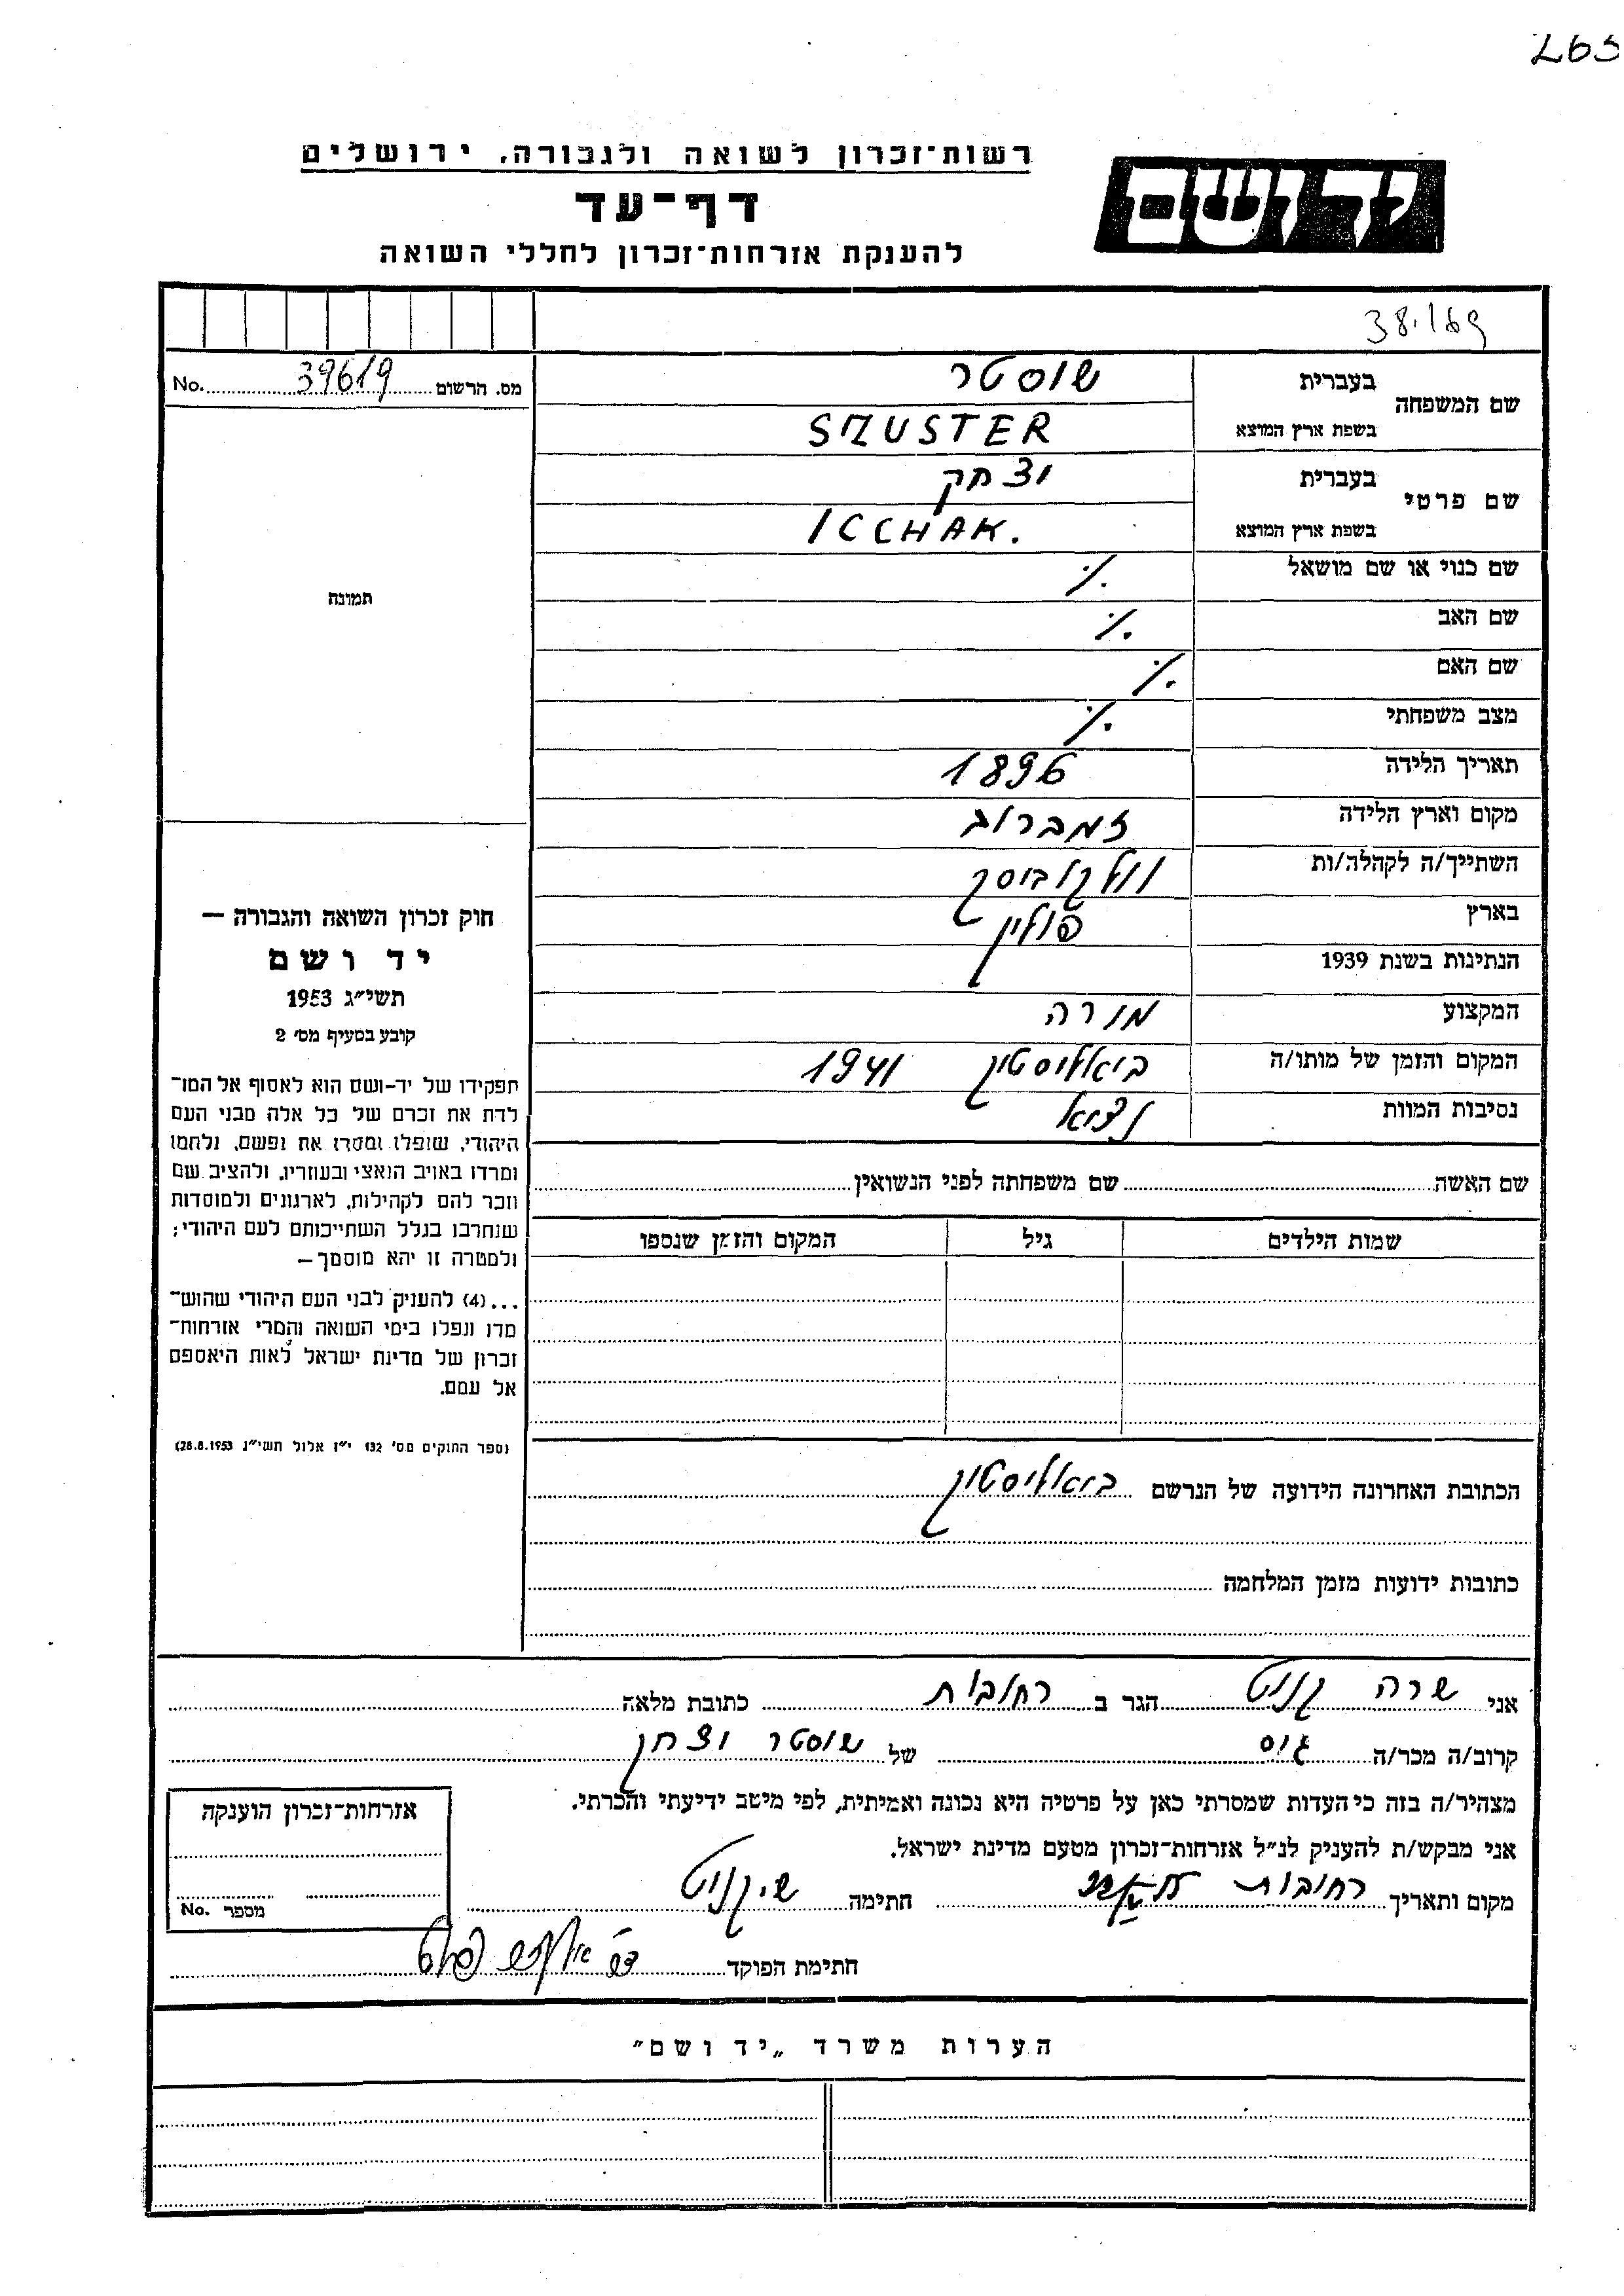 265
רשות־זכרון לשואה ולגבורה, ירושלים
יד ושם
דף־עד
להענקת אזרחות־זכרון לחללי השואה
38.169
מס. הרשום 39619 No.
שם המשפחה
בעברית שוסטר
בשפת ארץ המוצא SZUSTER
שם פרטי
בעברית יצחק
בשפת ארץ המוצא ICCHAK.
תמונה
שם כנוי או שם מושאל ·/.
שם האב ·/.
שם האם ·/.
מצב משפחתי ·/.
תאריך הלידה 1896
מקום וארץ הלידה זמברוב
השתייך/ה לקהלה/ות וולקוביסק
בארץ פולין
הנתינות בשנת 1939
המקצוע מורה
המקום והזמן של מותו/ה ביאליסטוק 1941
נסיבות המוות
חוק זכרון השואה והגבורה —
יד ושם
תשי״ג 1953
קובע בסעיף מס׳ 2
תפקידו של יד-ושם הוא לאסוף אל המו־
לדת את זכרם של כל אלה מבני העם
היהודי, שנפלו ומסרו את נפשם, נלחמו
ומרדו באויב הנאצי ובעוזריו, ולהציב שם
וזכר להם לקהילות, לארגונים ולמוסדות
שנחרבו בגלל השתייכותם לעם היהודי;
ולמטרה זו יהא מוסמך—
...(4) להעניק לבני העם היהודי שהוש־
מדו ונפלו בימי השואה והמרי אזרחות־
זכרון של מדינת ישראל לאות היאספם
אל עמם.
(ספר החוקים מס׳ 132 י״ז אלול תשי״ג 28.8.1953)
שם האשה שם משפחתה לפני הנשואין
שמות הילדים גיל המקום והזמן שנספו
הכתובת האחרונה הידועה של הנרשם ביאליסטוק
כתובות ידועות מזמן המלחמה
אני שרה הגר ב רחובות כתובת מלאה
קרוב/ה מכר/ה גיס של שוסטר יצחק
מצהיר/ה בזה כי העדות שמסרתי כאן על פרטיה היא נכונה ואמיתית, לפי מיטב ידיעתי והכרתי.
אני מבקש/ת להעניק לנ״ל אזרחות־זכרון מטעם מדינת ישראל.
מקום ותאריך רחובות חתימה
חתימת הפוקד
אזרחות־זכרון הוענקה
מספר No.
הערות משרד „יד ושם״